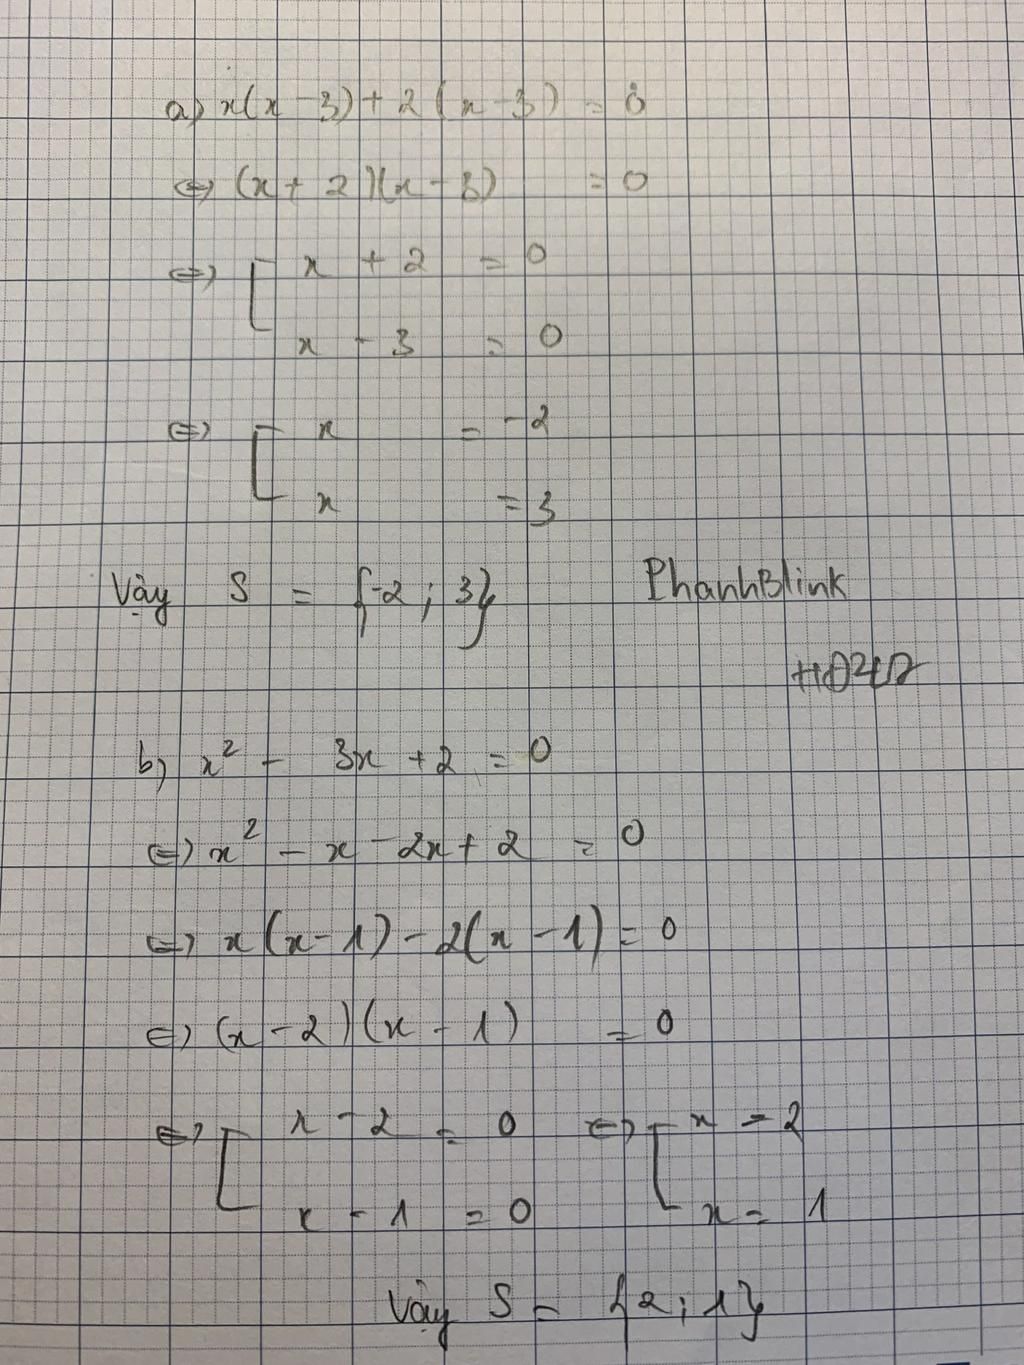 a) x(x - 3) + 2(x - 3) = 0
⇔ (x + 2)(x - 3) = 0
⇔ [ x + 2 = 0
x - 3 = 0
⇔ [ x = -2
x = 3
Vậy S = {-2; 3}
PhanhBlink
b) x² - 3x + 2 = 0
⇔ x² - x - 2x + 2 = 0
⇔ x(x - 1) - 2(x - 1) = 0
⇔ (x - 2)(x - 1) = 0
⇔ [ x - 2 = 0 ⇔ [ x = 2
x - 1 = 0 x = 1
Vậy S = {2; 1}